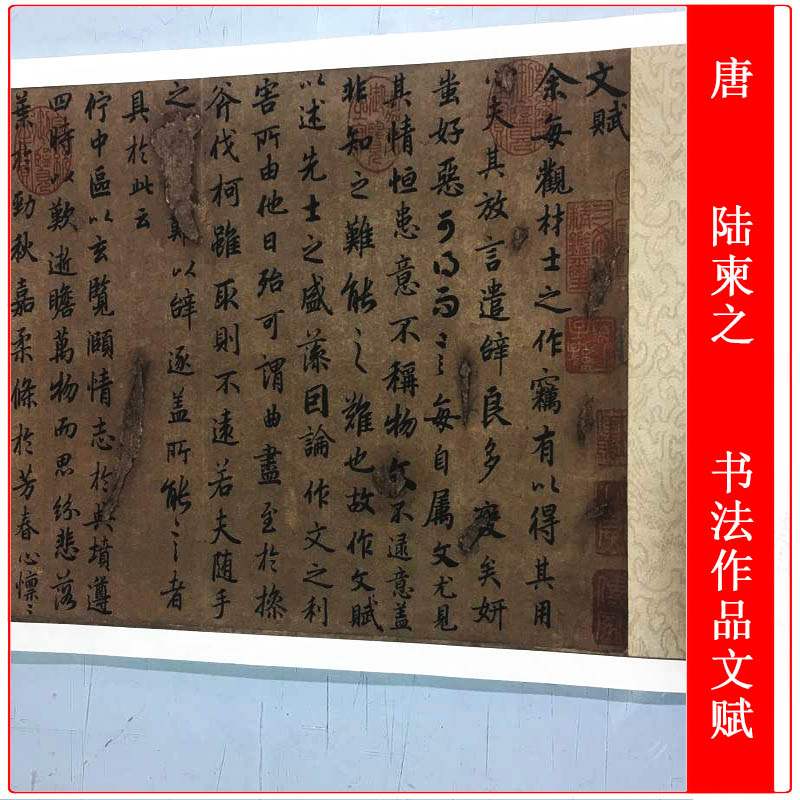 文賦
余每觀材士之作竊有以得其用
心夫其放言遣辭良多變矣妍
蚩好惡可得而言每自属文尤見
其情恒患意不稱物文不逮意盖
非知之難能之難也故作文賦
以述先士之盛藻因論作文之利
害所由他日殆可謂曲盡至於操
斧伐柯雖取則不遠若夫随手
之難以辭逐盖所能言者
具於此云
佇中區以玄覧頤情志於典墳遵
四時以歎逝瞻萬物而思紛悲落
葉於勁秋嘉柔條於芳春心懍〻
唐 陆柬之 书法作品文赋